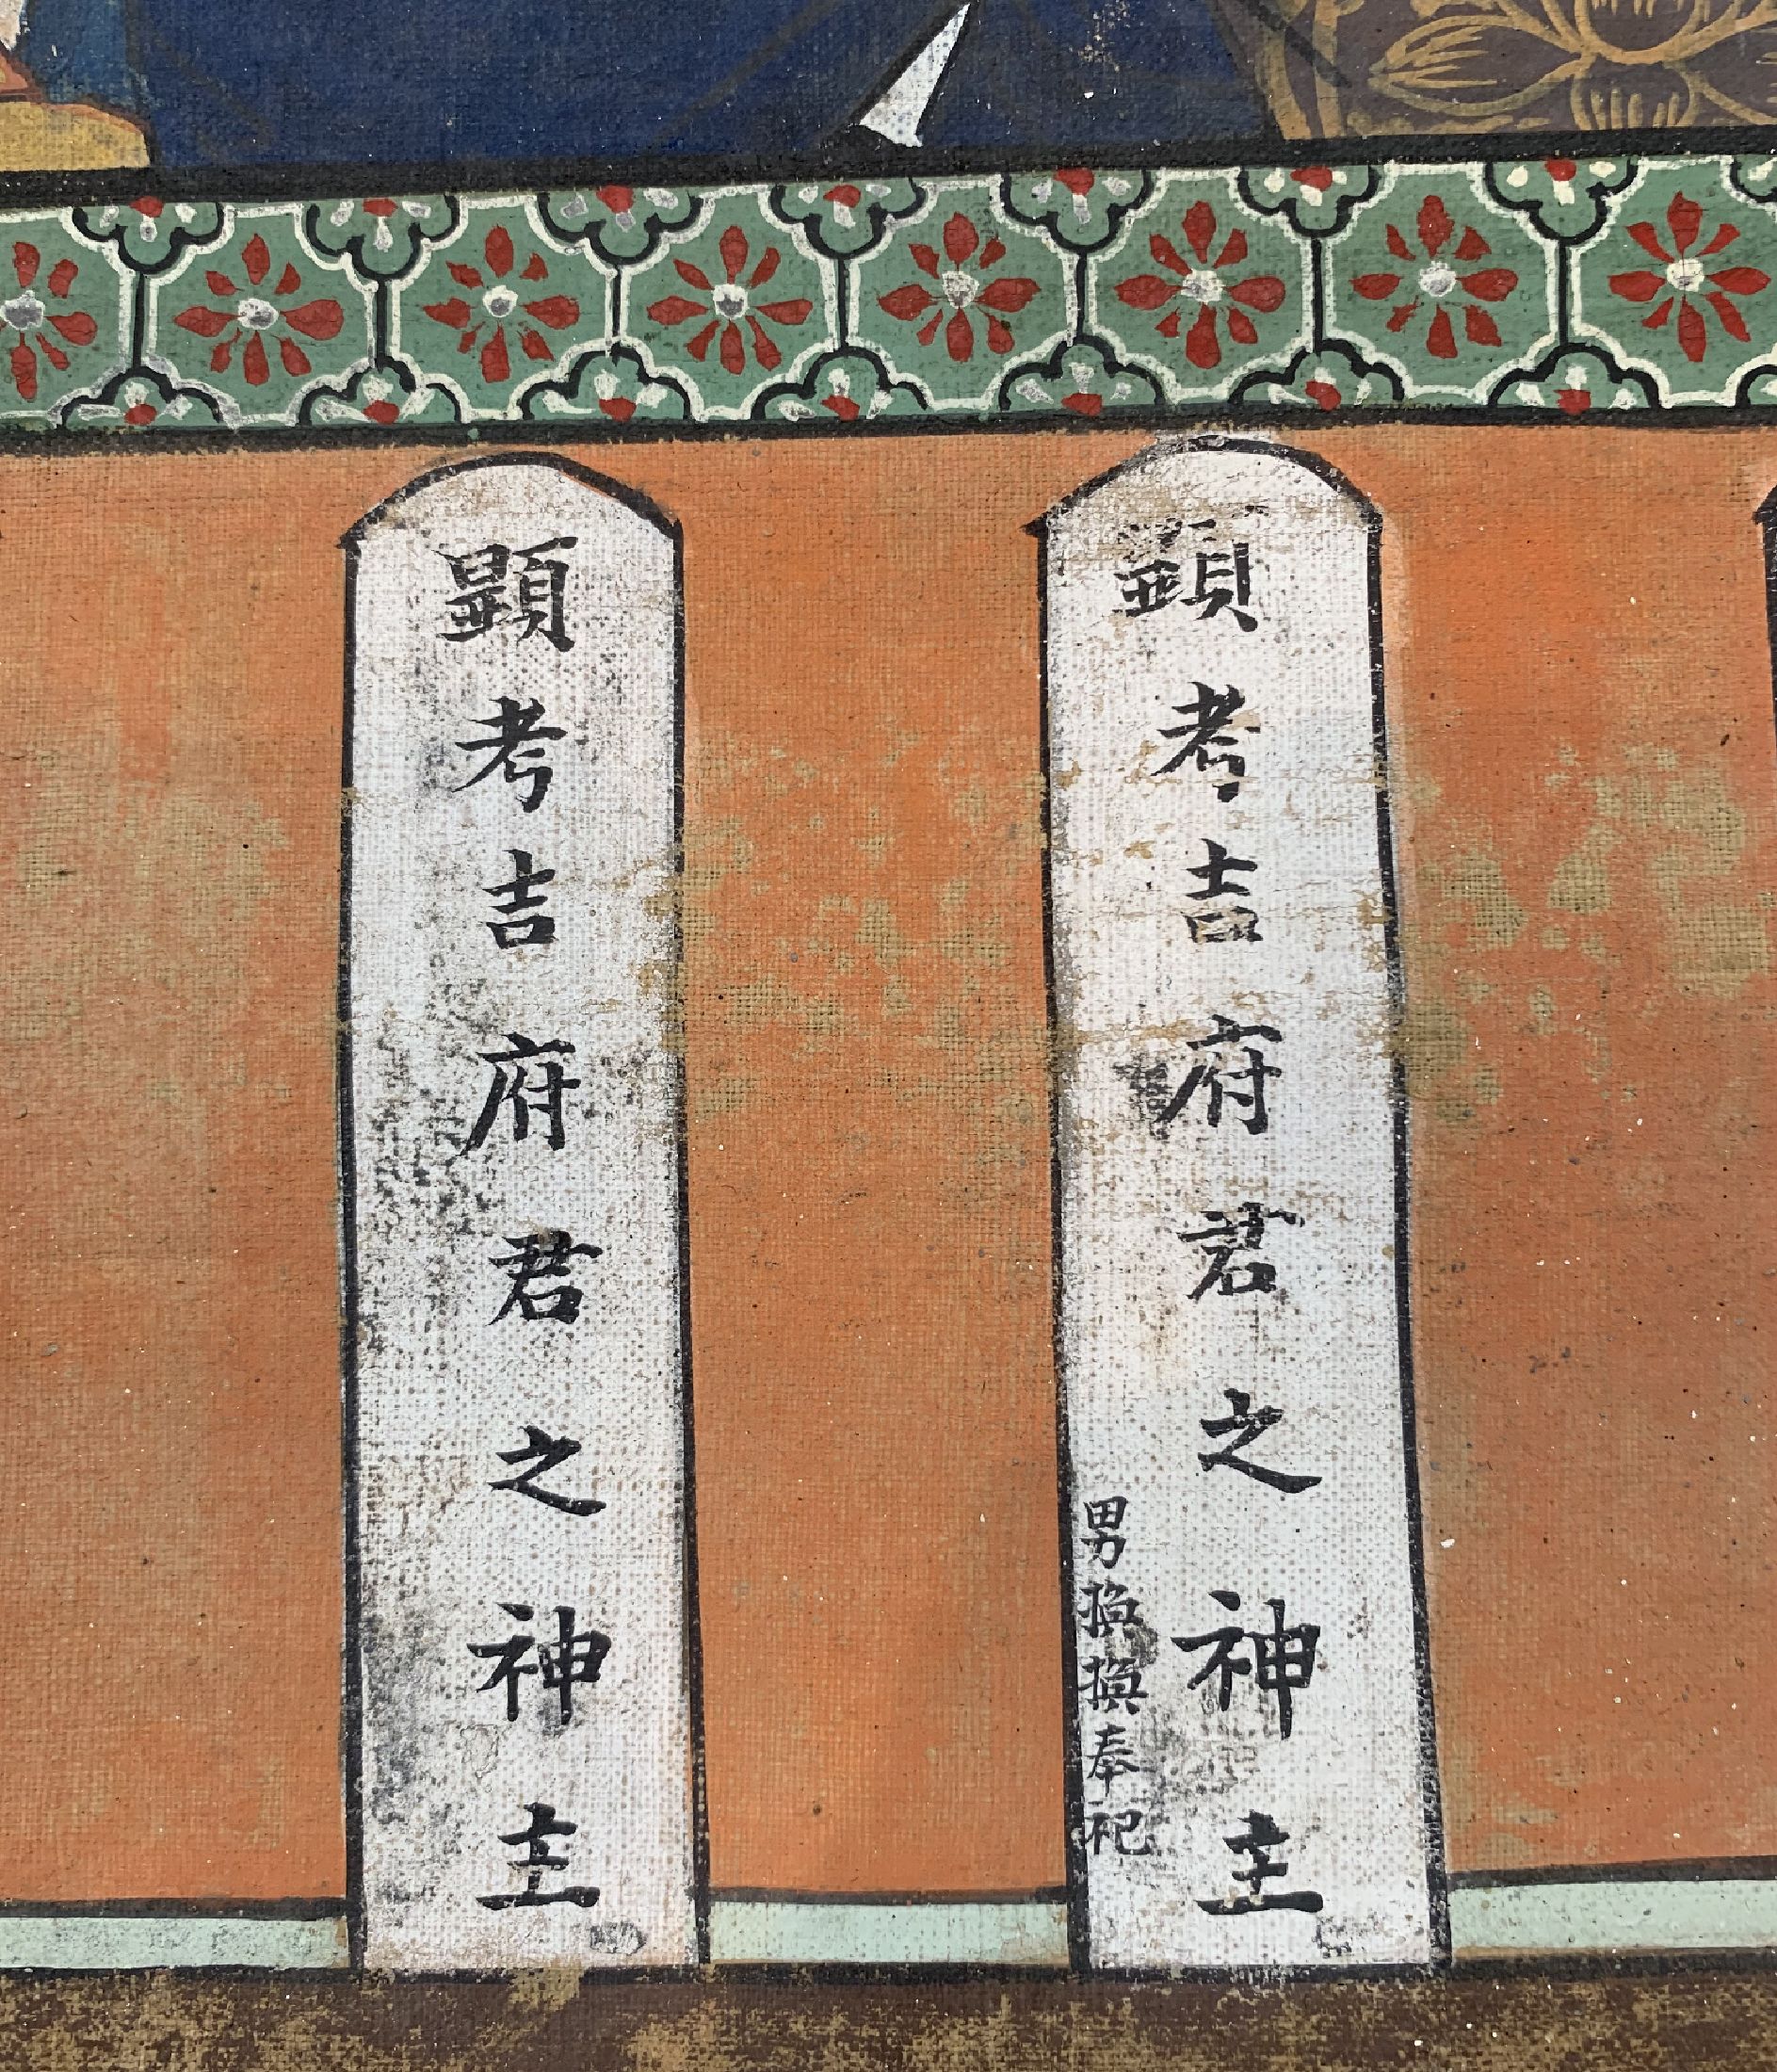 顕考吉府君之神主
男換奉祀
顕考吉府君之神主